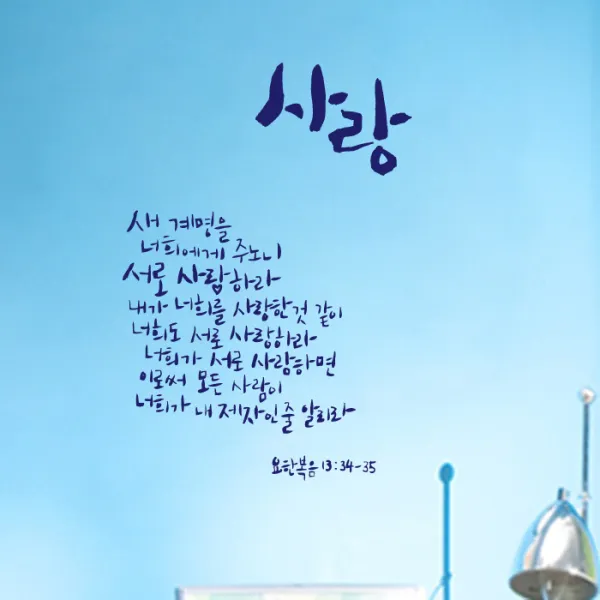 사랑
새 계명을
너희에게 주노니
서로 사랑하라
내가 너희를 사랑한 것 같이
너희도 서로 사랑하라
너희가 서로 사랑하면
이로써 모든 사람이
너희가 내 제자인줄 알리라
요한복음 13:34-35